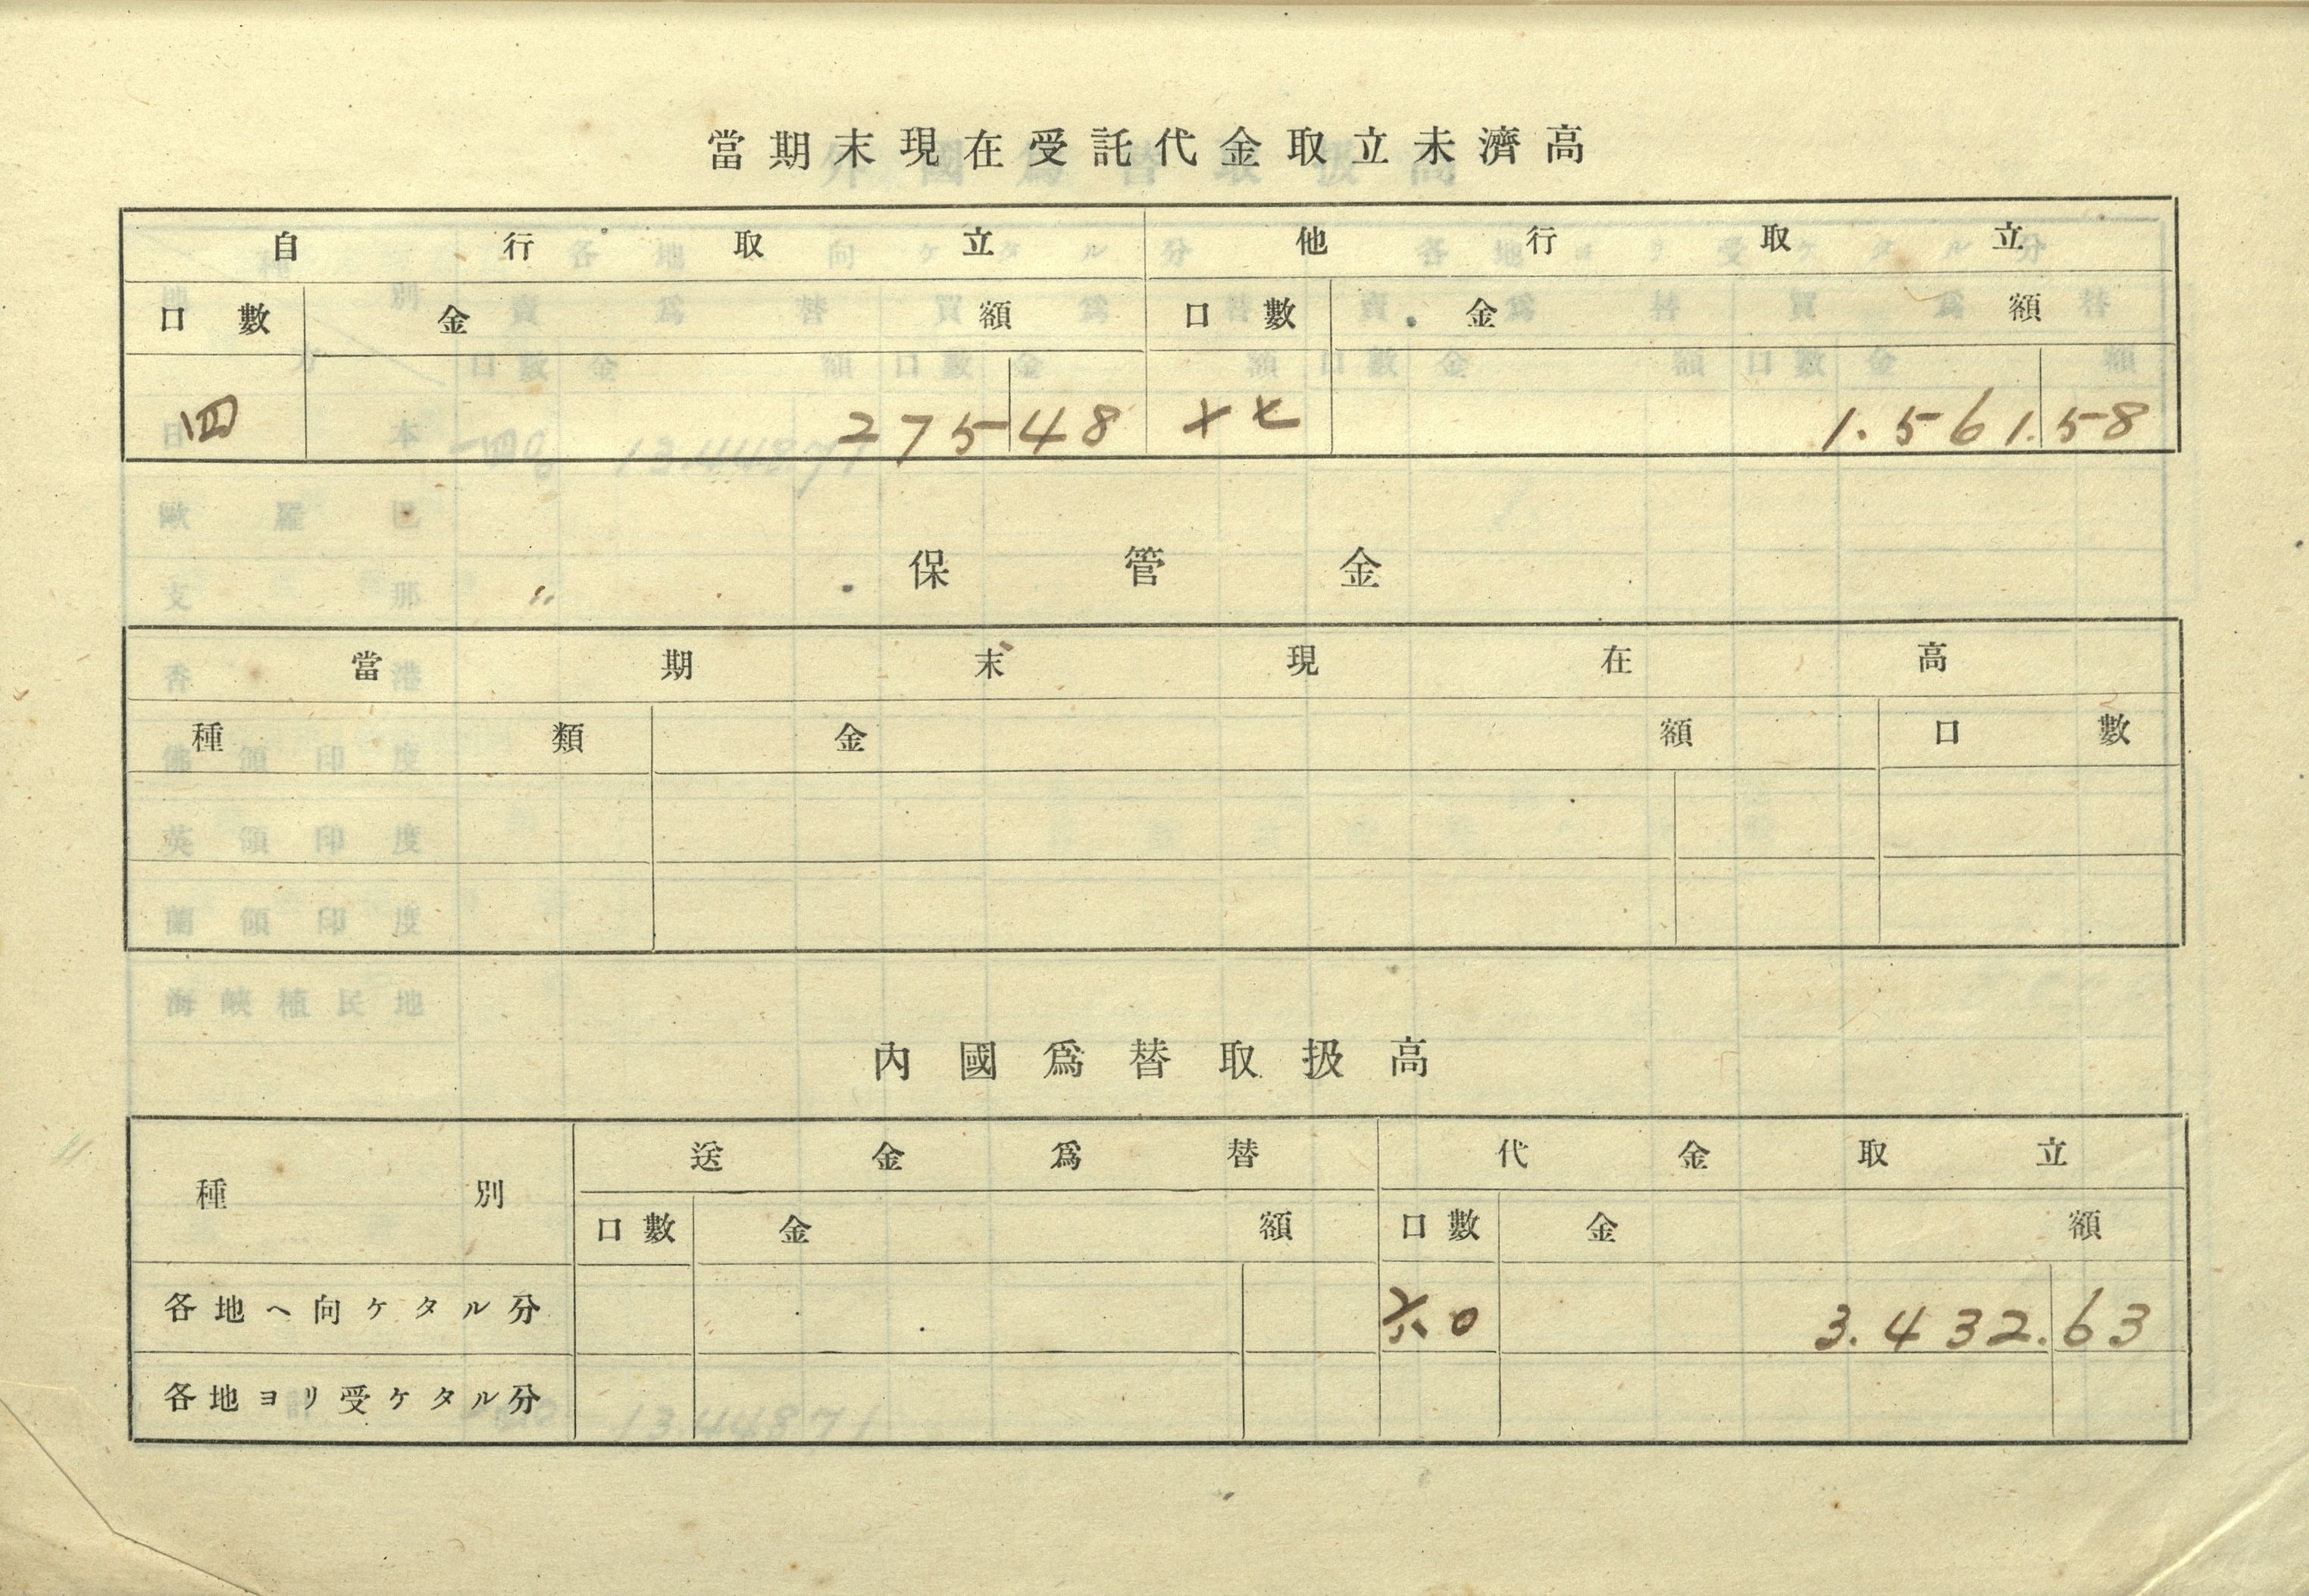 當期末現在受託代金取立未濟高
自行取立 他行取立
口數 金額 口數 金額
四 275 48 1.561.58
保管金
〃
當期末現在高
種類 金額 口數
內國爲替取扱高
種別 送金爲替 代金取立
口數 金額 口數 金額
各地へ向ケタル分 六〇 3.432.63
各地ヨリ受ケタル分